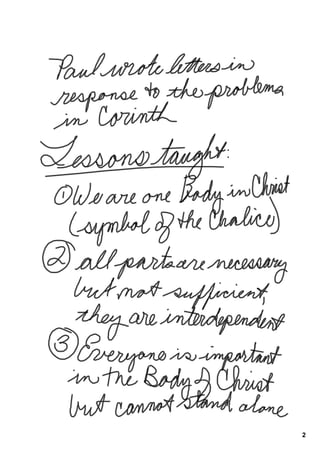 Paul wrote letters in
response to the problems
in Corinth
Lessons taught:
① We are one Body in Christ
(symbol of the Chalice)
② all parts are necessary
but not sufficient,
they are interdependent
③ Everyone is important
in the Body of Christ
but cannot stand alone
2